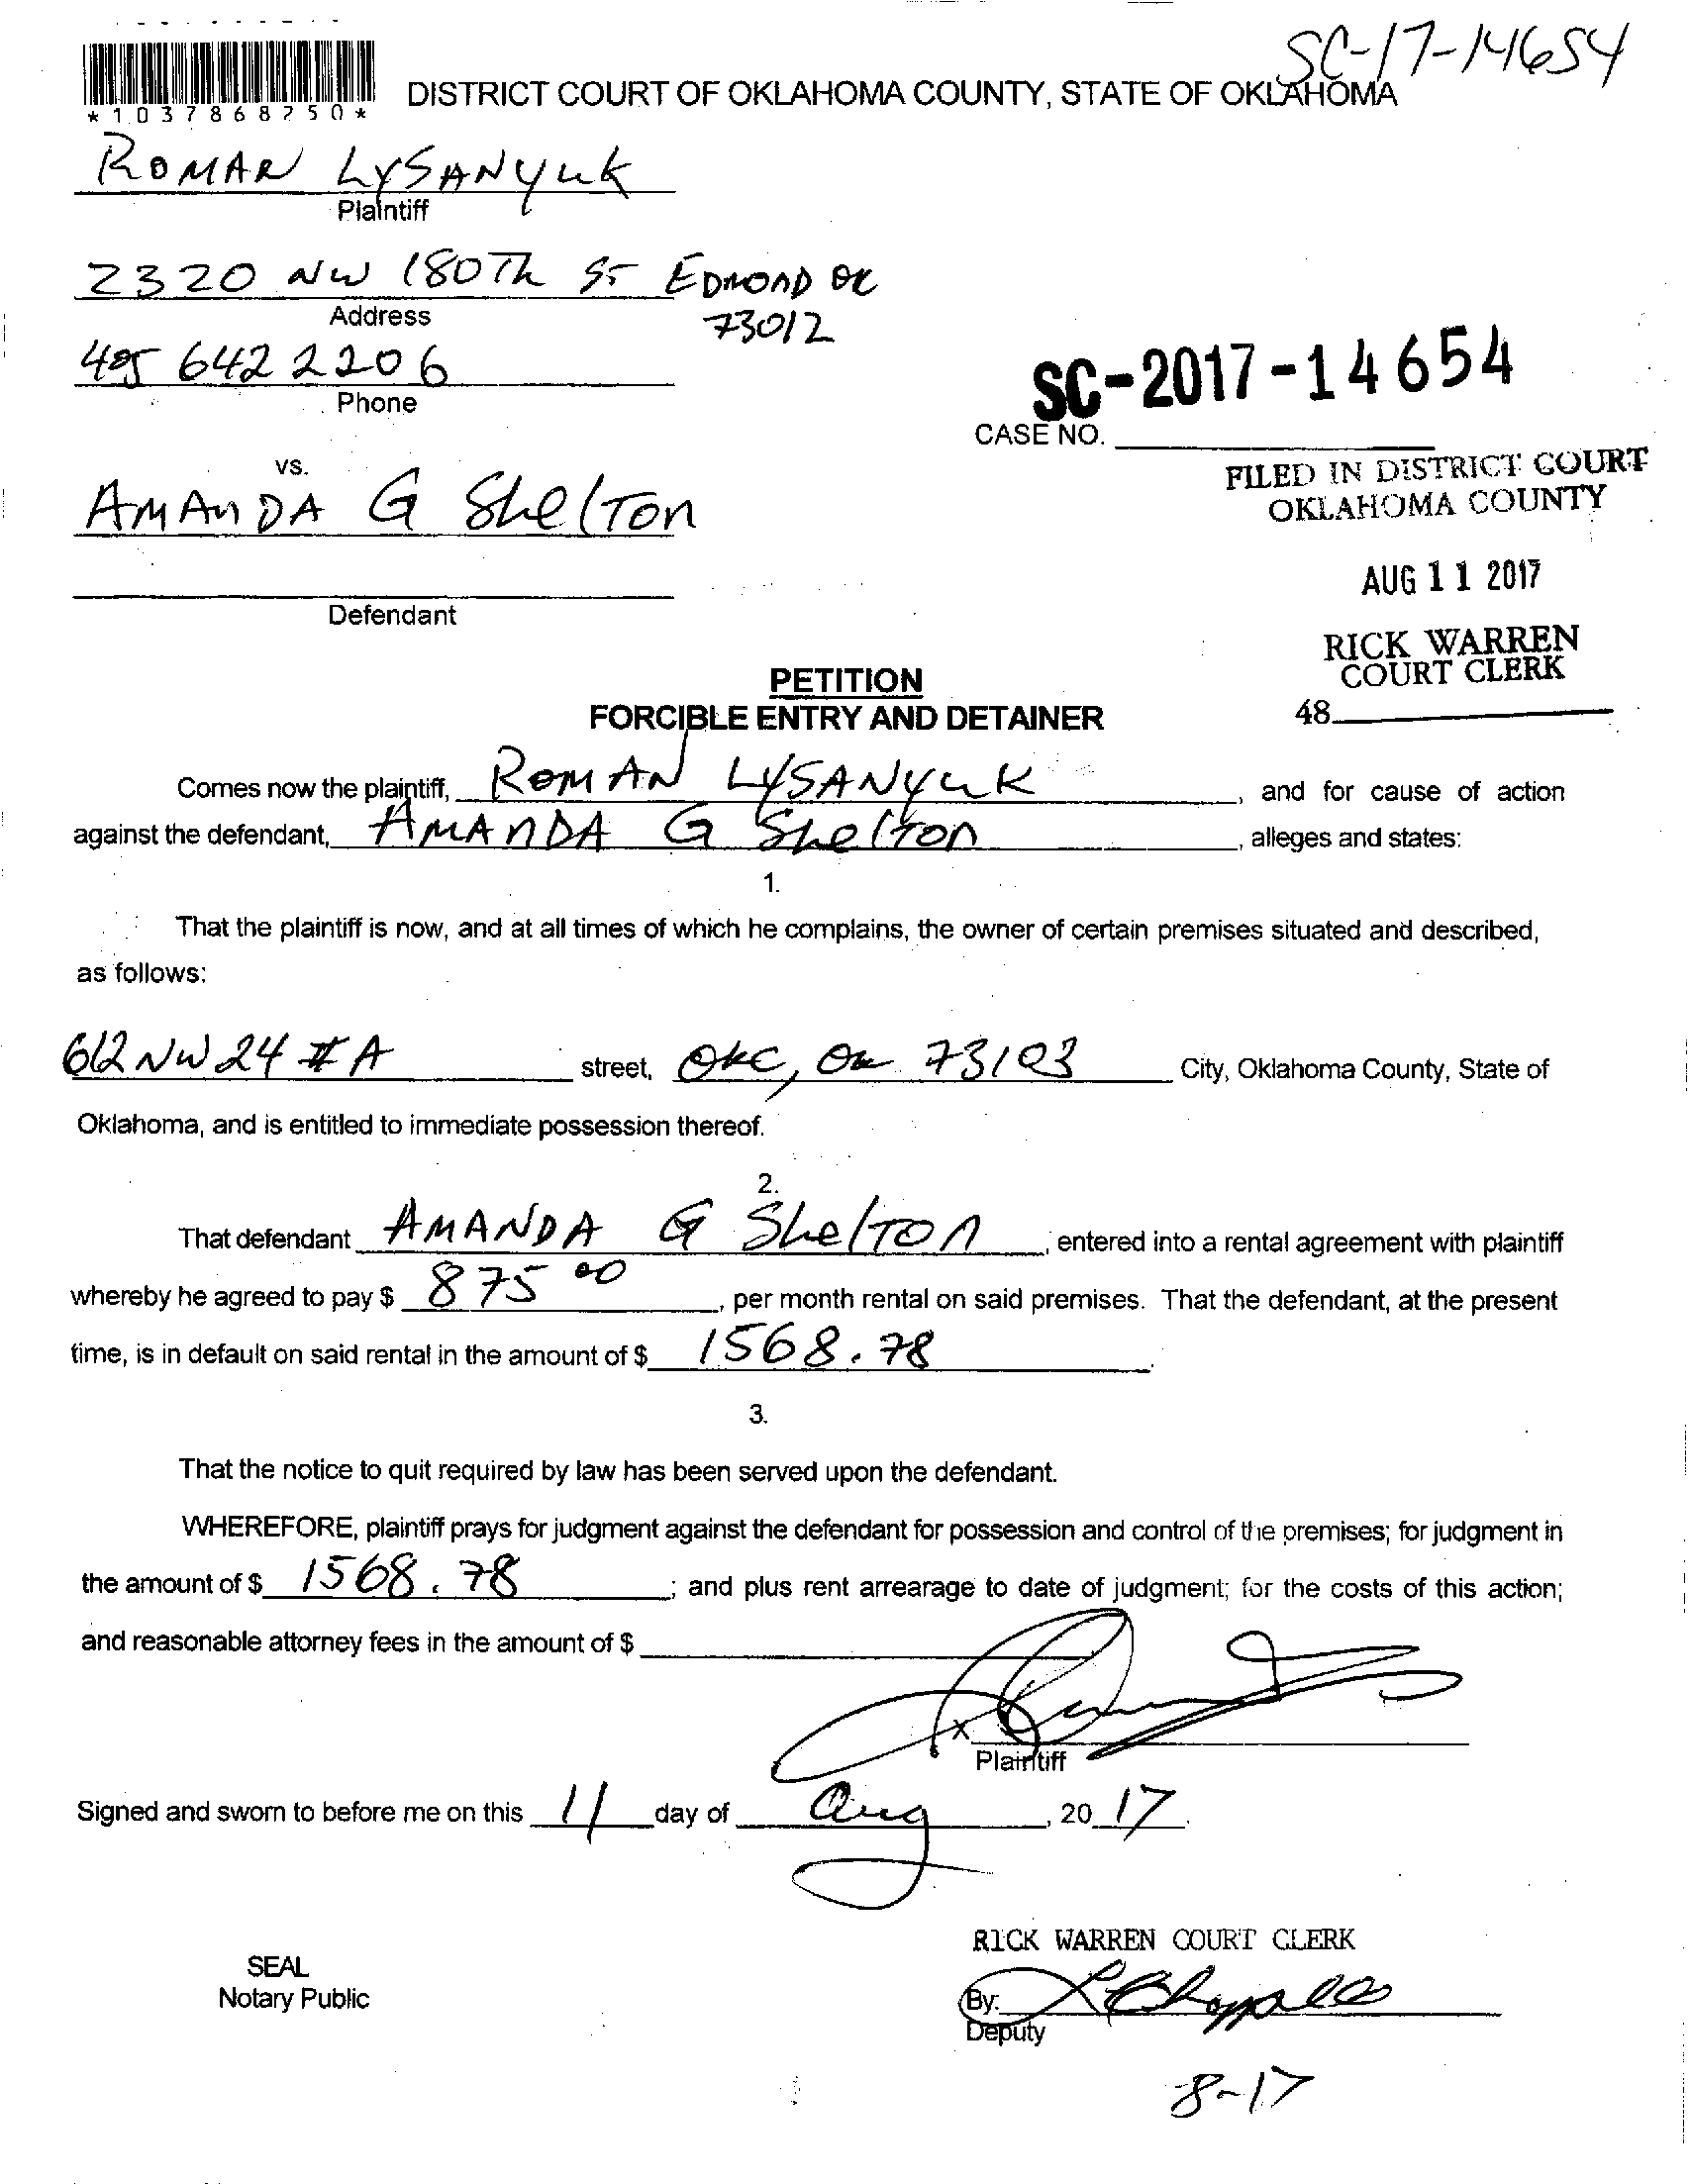 SC-17-14654
*1037868750*
DISTRICT COURT OF OKLAHOMA COUNTY, STATE OF OKLAHOMA
ROMAN LYSANYUK
Plaintiff
2320 NW 180Th ST EDMOND OK
Address
73012
405 642 2206
Phone
SC-2017-14654
CASE NO.
vs.
FILED IN DISTRICT COURT
OKLAHOMA COUNTY
AMANDA G SheLTON
AUG 11 2017
Defendant
RICK WARREN
COURT CLERK
48
PETITION
FORCIBLE ENTRY AND DETAINER
Comes now the plaintiff, ROMAN LYSANYUK, and for cause of action
against the defendant, AMANDA G SheLTON, alleges and states:
1.
That the plaintiff is now, and at all times of which he complains, the owner of certain premises situated and described,
as follows:
612 NW 24 #A street, OKC, OK 73103 City, Oklahoma County, State of
Oklahoma, and is entitled to immediate possession thereof.
2.
That defendant AMANDA G SheLTON, entered into a rental agreement with plaintiff
whereby he agreed to pay $ 875 00, per month rental on said premises. That the defendant, at the present
time, is in default on said rental in the amount of $ 1568.78.
3.
That the notice to quit required by law has been served upon the defendant.
WHEREFORE, plaintiff prays for judgment against the defendant for possession and control of the premises; for judgment in
the amount of $ 1568.78; and plus rent arrearage to date of judgment; for the costs of this action;
and reasonable attorney fees in the amount of $
X
Plaintiff
Signed and sworn to before me on this 11 day of Aug, 20 17.
RICK WARREN COURT CLERK
SEAL
Notary Public
By:
Deputy
8-17